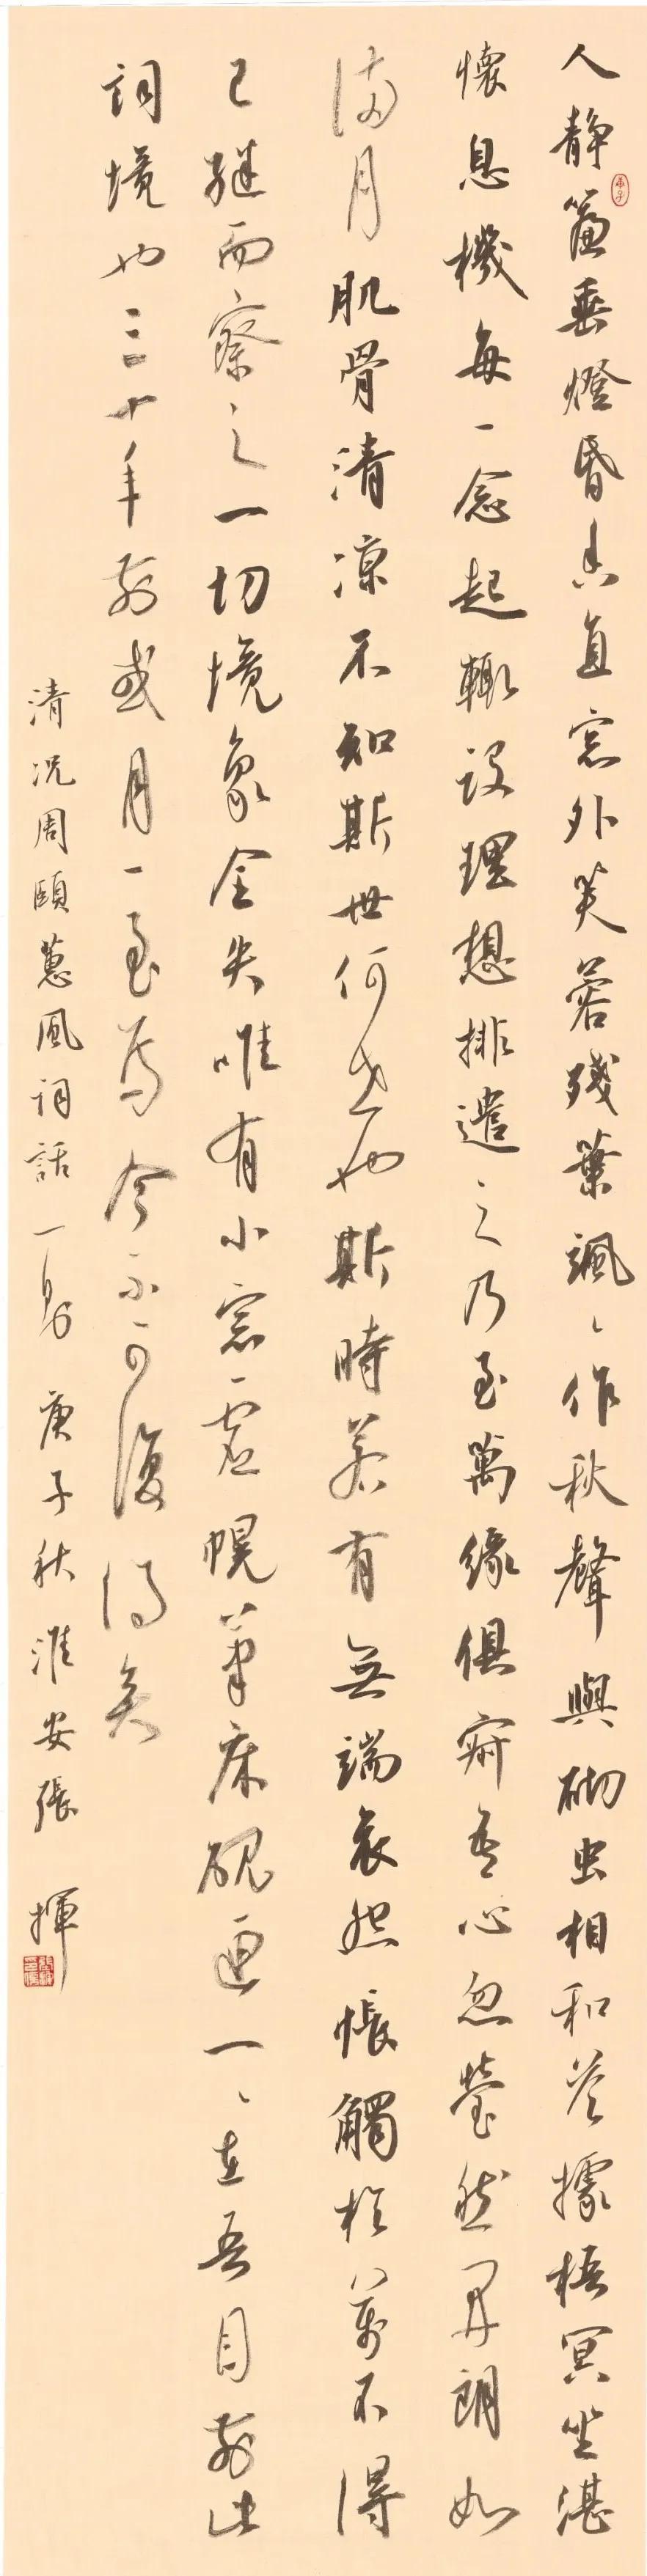 人靜簾垂燈昏香直窓外芙蓉殘葉颯〻作秋聲與砌虫相和答據梧冥坐湛
懷息機每一念起輒設理想排遣之乃至萬緣俱寂吾心忽瑩然開朗如
滿月肌骨清涼不知斯世何世也斯時若有無端哀怨悵觸於萬不得
已繼而察之一切境象全失唯有小窓虛幌筆床硯匣一〻在吾目前此
詞境也三十年前或月一至焉今不可復得矣
清況周頤蕙風詞話一則 庚子秋淮安張揮